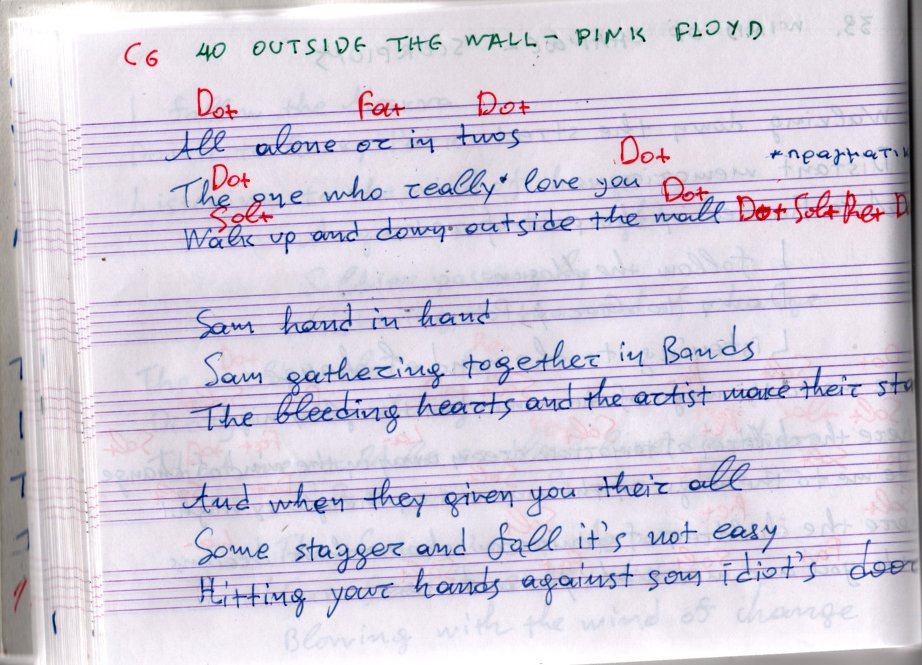 C6 40 OUTSIDE THE WALL - PINK FLOYD
Do+ Fa+ Do+
All alone or in twos
Do+ Do+ *πραγματικ
The one who really* love you
Sol+ Do+
Walk up and down outside the wall Do+ Sol+ Re+ D
Sam hand in hand
Sam gathering together in Bands
The bleeding hearts and the artist make their sta
And when they given you their all
Some stagger and fall it's not easy
Hitting your hands against som idiot's door
Blowing with the wind of change